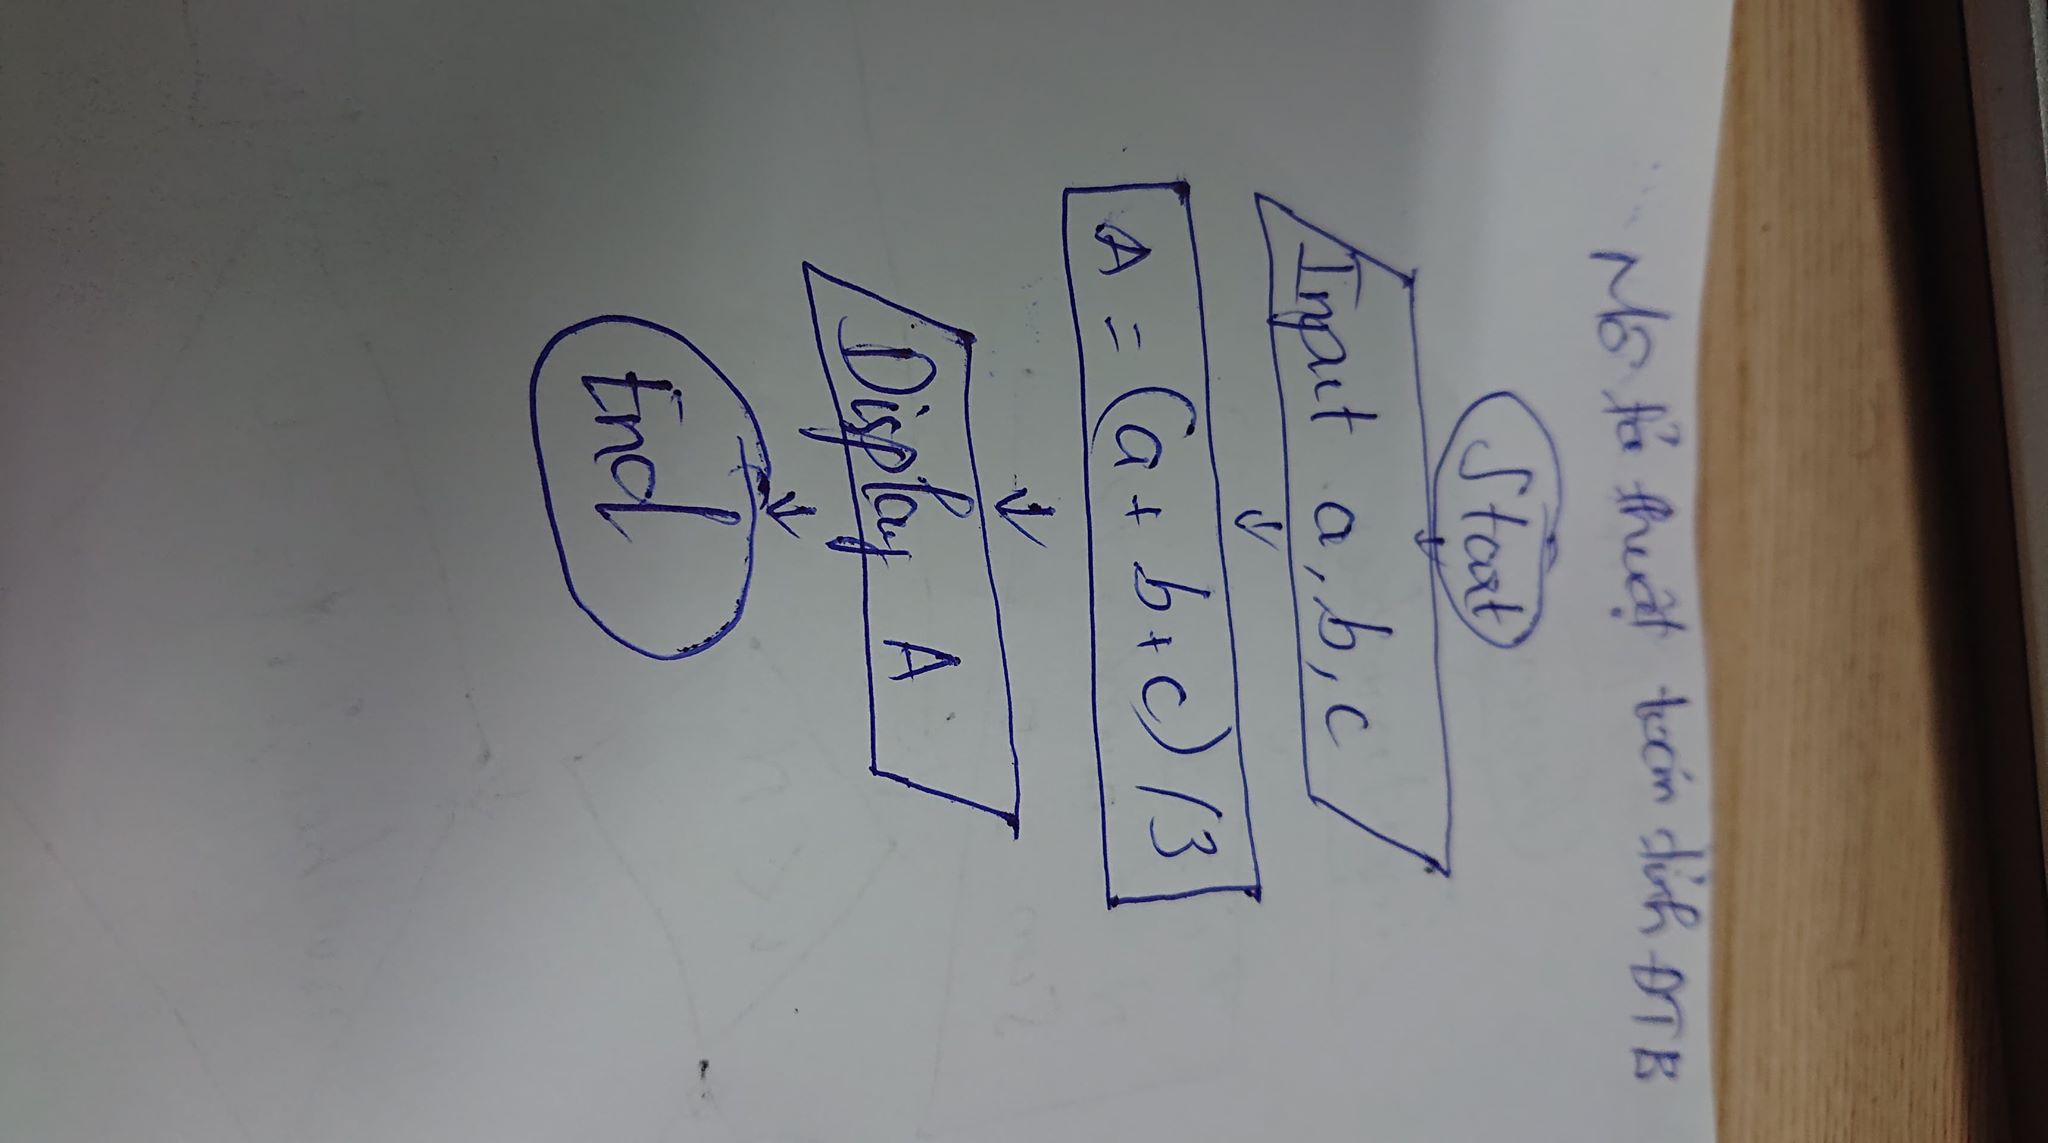 Mô tả thuật toán tính ĐTB
Start
Input a, b, c
A = (a + b + c) / 3
Display A
End